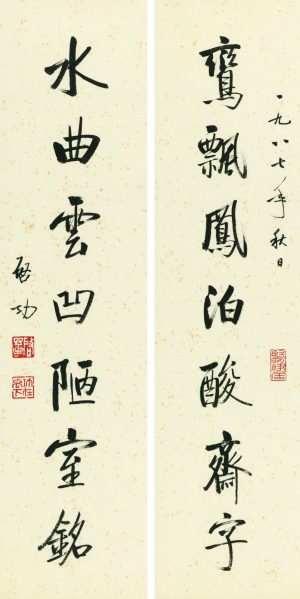 一九八七年秋日
鸞飄鳳泊酸齋字
水曲雲凹陋室銘
啓功